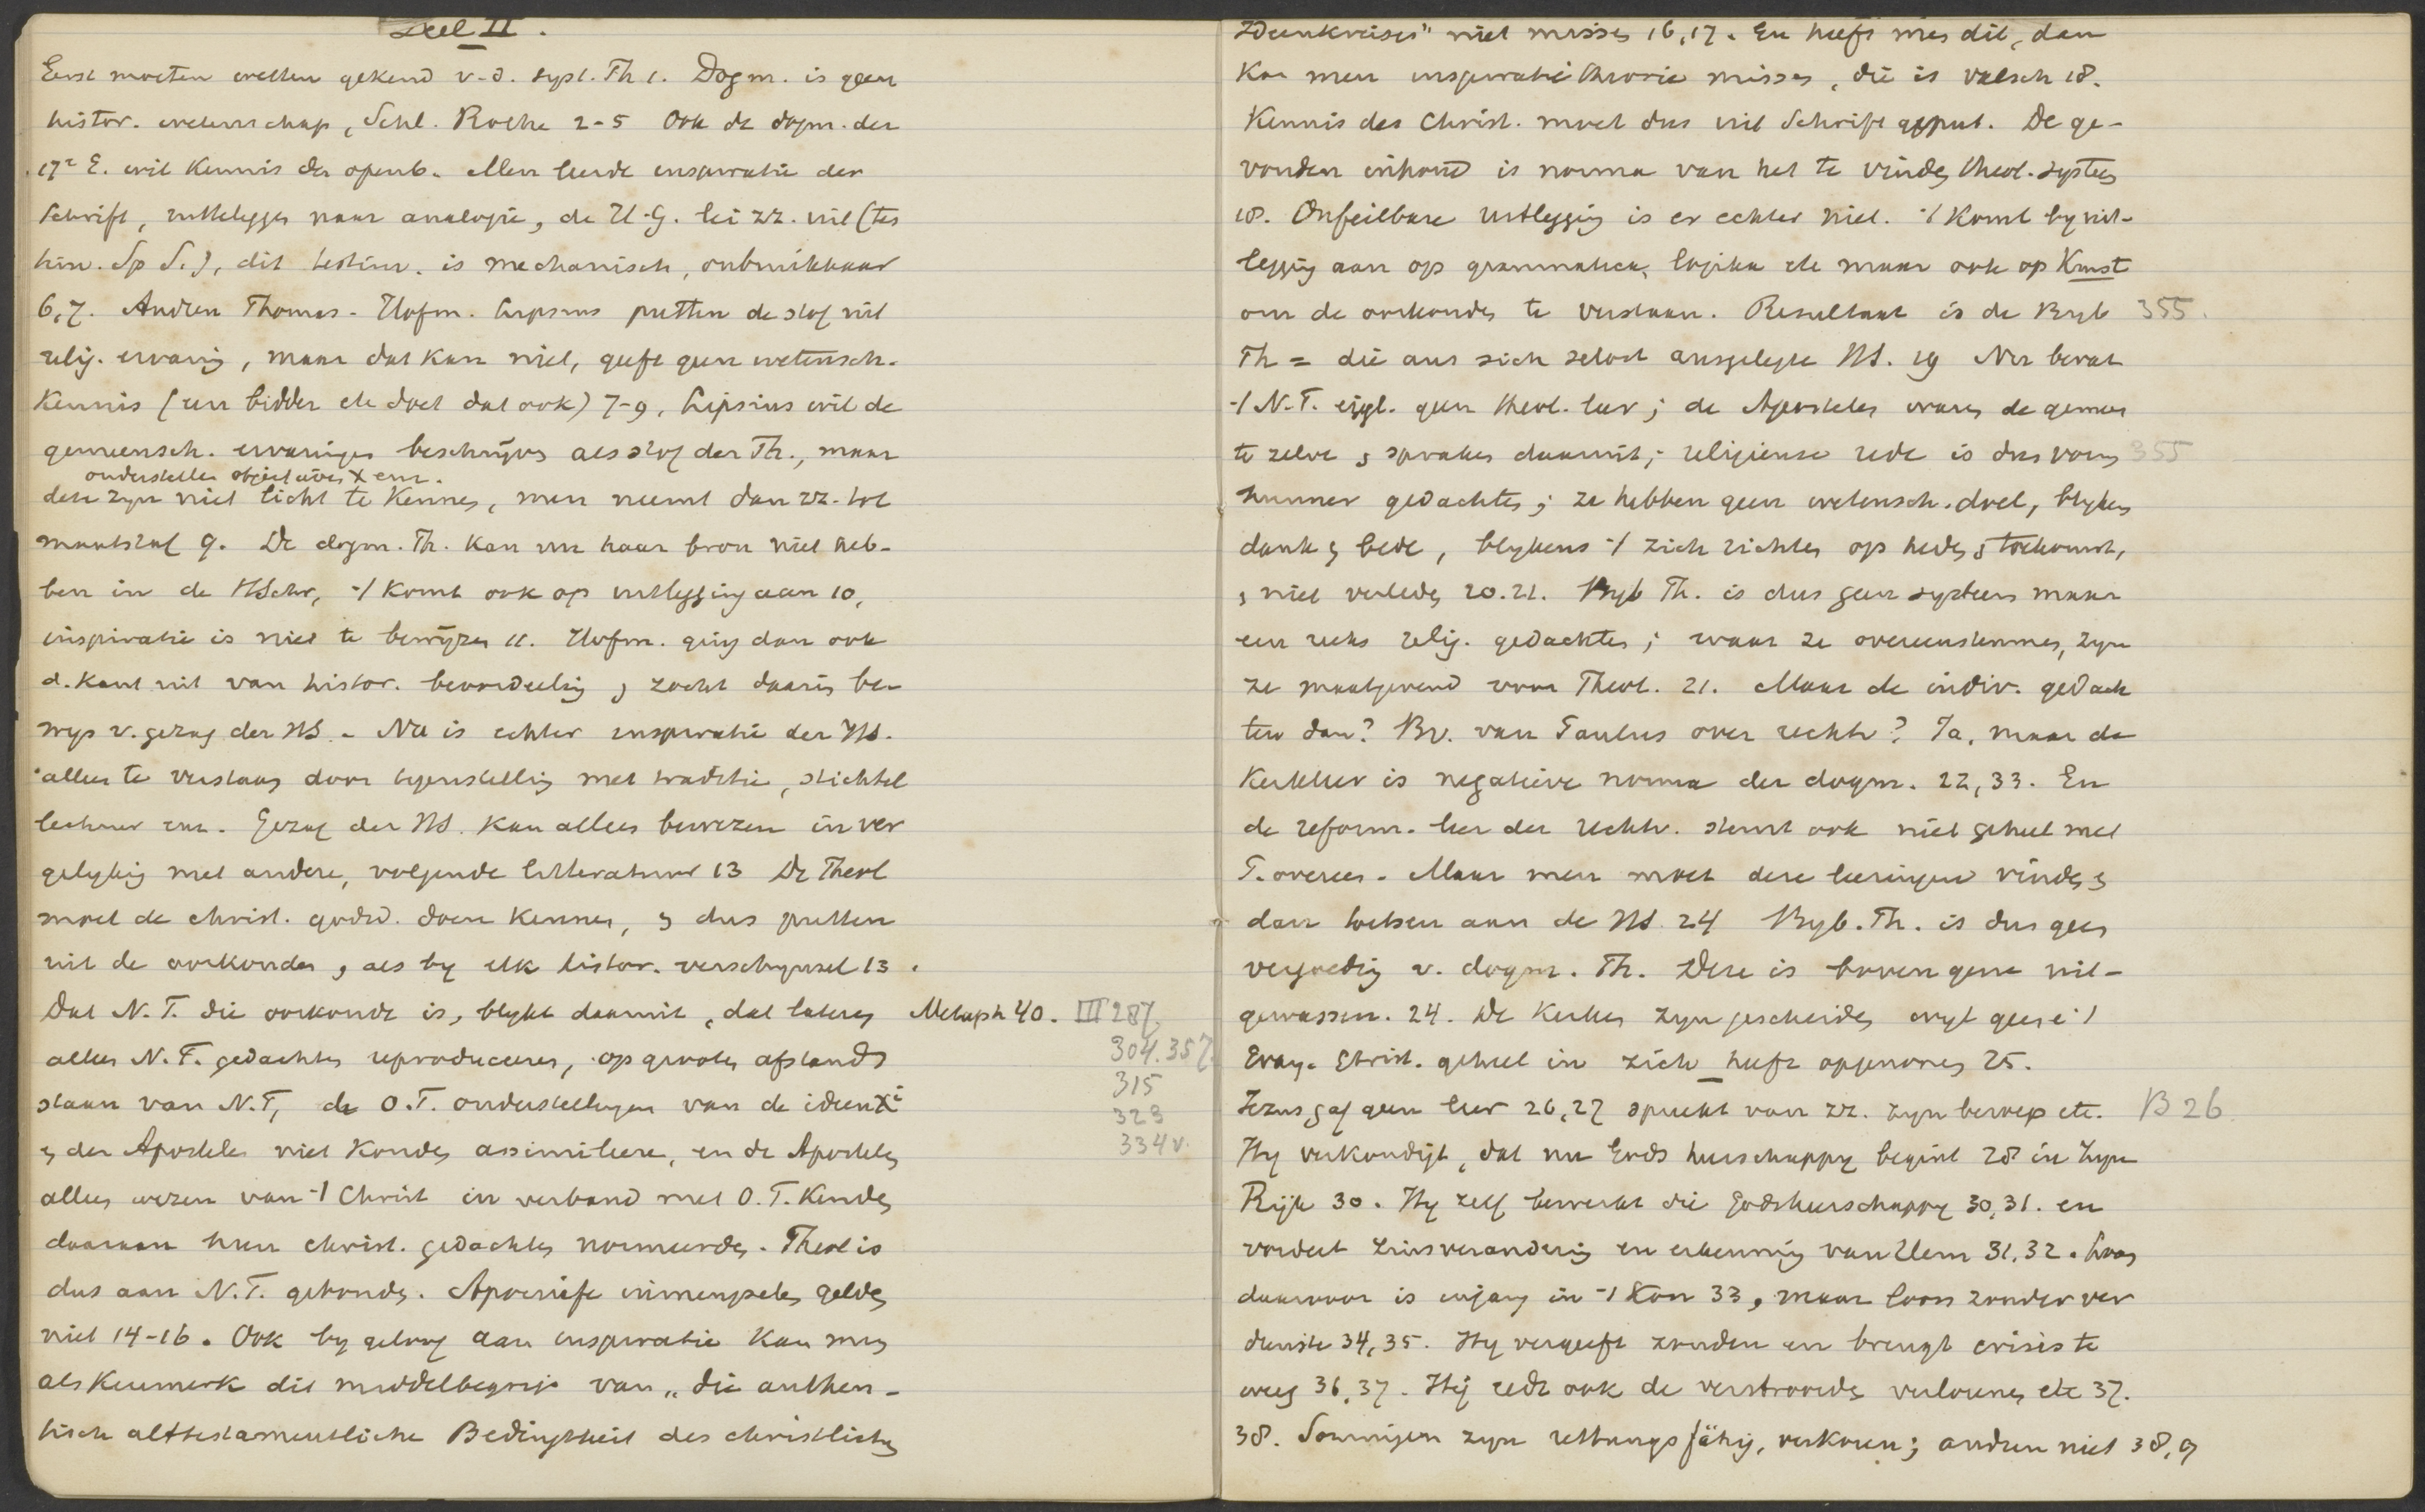 Deel II.
Eerst moeten wetten gekend v.d. syst. Th 1. Dogm. is geen
histor. wetenschap, Schl. Rothe 2-5 Ook de dogm. der
17e E. wil kennis der openb. Men leerde inspiratie der
Schrift, uitteleggen naar analogie, de H.G. lei zz. uit (tes
tim. Sp S.), dit testim. is mechanisch, onbruikbaar
6,7. Andren Thomas. Hofm. Lipsius putten de stof uit
relig. ervaring, maar dat kan niet, geeft geen wetensch.
kennis (een bidder etc doet dat ook) 7-9, Lipsius wil de
gemeensch. ervaringen beschrijven als stof der Th., maar
onderstellen objectives X enz.
deze zyn niet licht te kennen, men neemt dan zz. tot
maatstaf 9. De dogm. Th. kan nu haar bron niet heb-
ben in de HSchr, -/ komt ook op uitlegging aan 10,
inspiratie is niet te bewijzen 11. Hofm. ging dan ook
d. kant uit van histor. beoordeeling en zocht daarin be-
wys v. gezag der HS. Nu is echter inspiratie der HS.
alleen te verstaan door tegenstelling met traditie, stichtel
lectuur enz. Gezag der HS. kan alleen bewezen in ver
gelyking met andere, volgende litteratuur 13 De Theol
moet de christ. godsd. doen kennen, en dus putten
uit de oorkonden, als by elk histor. verschynsel 13.
Dat N.T. die oorkonde is, blykt daaruit, dat lateren
Metaph 40. III 287,
304. 357.
315
323
334 v.
alleen N.T. gedachten reproduceeren, op grooten afstand
staan van N.T, de O.T. onderstellingen van de ideen X i
en der Apostelen niet konden assimileere, en de Apostelen
alleen wezen van -/ Christ in verband met O.T. kenden
daaraan hun christ. gedachten normeerden. Theol is
dus aan N.T. gebonden. Apocriefe inmengselen gelden
niet 14-16. Ook by geloof aan inspiratie kan men
als kenmerk dit middelbegrip van „die authen-
tisch alttestamentliche Bedingtheit des christlichen
Ideenkreises" niet missen 16,17. En heeft men dit, dan
kan men inspiratietheorie missen, die is valsch 18.
Kennis des Christ. moet dus uit Schrift geput. De ge-
vonden inhoud is norma van het te vinden theol. systeem
18. Onfeilbare uitlegging is er echter niet. -/ Komt by uit-
legging aan op grammatica, logika etc maar ook op Kunst
om de oorkonden te verstaan. Resultaat is de Byb 355.
Th = die aus sich selbst ausgelegte HS. 19 Nu bevat
-/ N.T. eigl. geen theol. leer; de Apostelen waren de gemeen
te zelve en spraken daaruit; religieuse rede is dus vorm 355
hunner gedachten; ze hebben geen wetensch. doel, blykens
dank en bede, blykens -/ zich richten op heden en toekomst,
en niet verleden 20.21. Byb Th. is dus geen systeem maar
een reeks relig. gedachten; waar ze overeenstemmen, zyn
ze maatgevend voor Theol. 21. Maar de indiv. gedach
ten dan? Bv. van Paulus over rechtv? Ja, maar de
Kerkleer is negatieve norma der dogm. 22,33. En
de reform. leer der rechtv. stemt ook niet geheel met
P. overeen. Maar men moet deze leeringen vinden en
dan toetsen aan de HS 24 Byb. Th. is dus geen
vergoeding v. dogm. Th. Deze is boven gene uit-
gewassen. 24. De Kerken zyn gescheiden wyl geene -/
Evang. Christ. geheel in zich heeft opgenomen 25.
Jezus gaf geen leer 26,27 spreekt van zz. zyn beroep etc. B 26.
Hy verkondigt, dat nu Gods heerschappy begint 28 in zyn
Rijk 30. Hy zelf bewerkt die Godsheerschappy 30,31. en
vordert zinsverandering en erkenning van Hem 31,32. Loon
daarvoor is ingang in -/ Kon 33, maar loon zonder ver
dienste 34,35. Hy vergeeft zonden en brengt crisis te
weeg 36,37. Hij redt ook de verstrooide verlorenen etc 37.
38. Sommigen zyn rettungsfähig, verkoren; andren niet 38,9